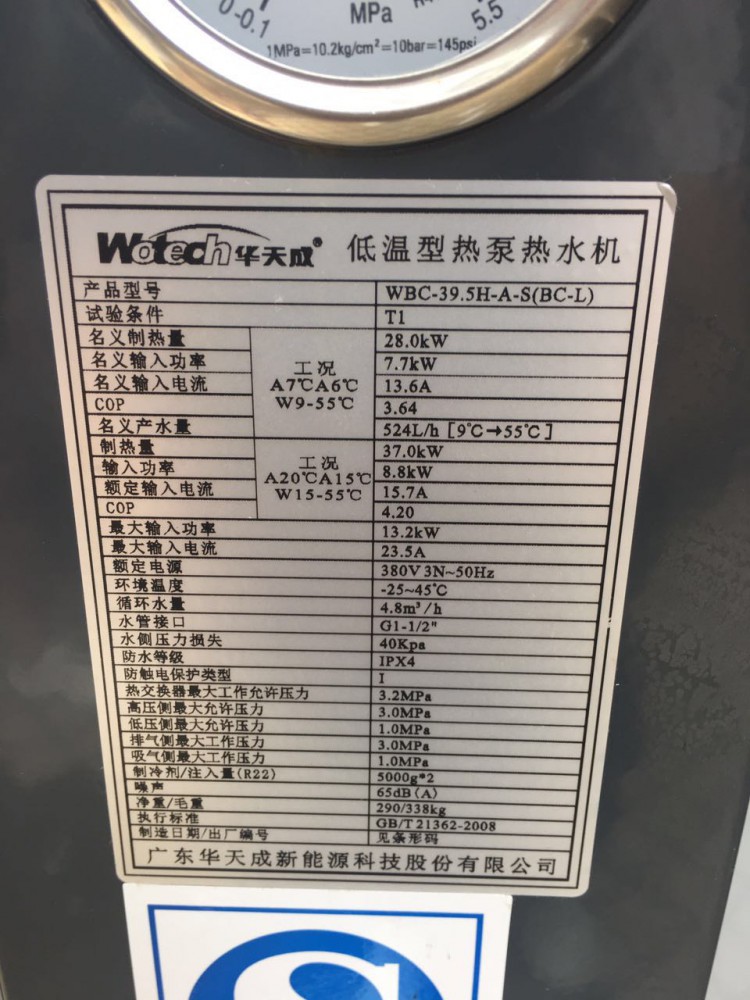 0-0.1
MPa
5.5
1MPa=10.2kg/cm²=10bar=145psi
Wotech华天成® 低温型热泵热水机
产品型号 WBC-39.5H-A-S(BC-L)
试验条件 T1
名义制热量 28.0kW
名义输入功率 7.7kW
名义输入电流 13.6A
COP 3.64
名义产水量 524L/h [9℃→55℃]
工况
A7℃A6℃
W9-55℃
制热量 37.0kW
输入功率 8.8kW
额定输入电流 15.7A
COP 4.20
工况
A20℃A15℃
W15-55℃
最大输入功率 13.2kW
最大输入电流 23.5A
额定电源 380V 3N~50Hz
环境温度 -25~45℃
循环水量 4.8m³/h
水管接口 G1-1/2"
水侧压力损失 40Kpa
防水等级 IPX4
防触电保护类型 I
热交换器最大工作允许压力 3.2MPa
高压侧最大允许压力 3.0MPa
低压侧最大允许压力 1.0MPa
排气侧最大工作压力 3.0MPa
吸气侧最大工作压力 1.0MPa
制冷剂/注入量(R22) 5000g*2
噪声 65dB(A)
净重/毛重 290/338kg
执行标准 GB/T 21362-2008
制造日期/出厂编号 见条形码
广东华天成新能源科技股份有限公司